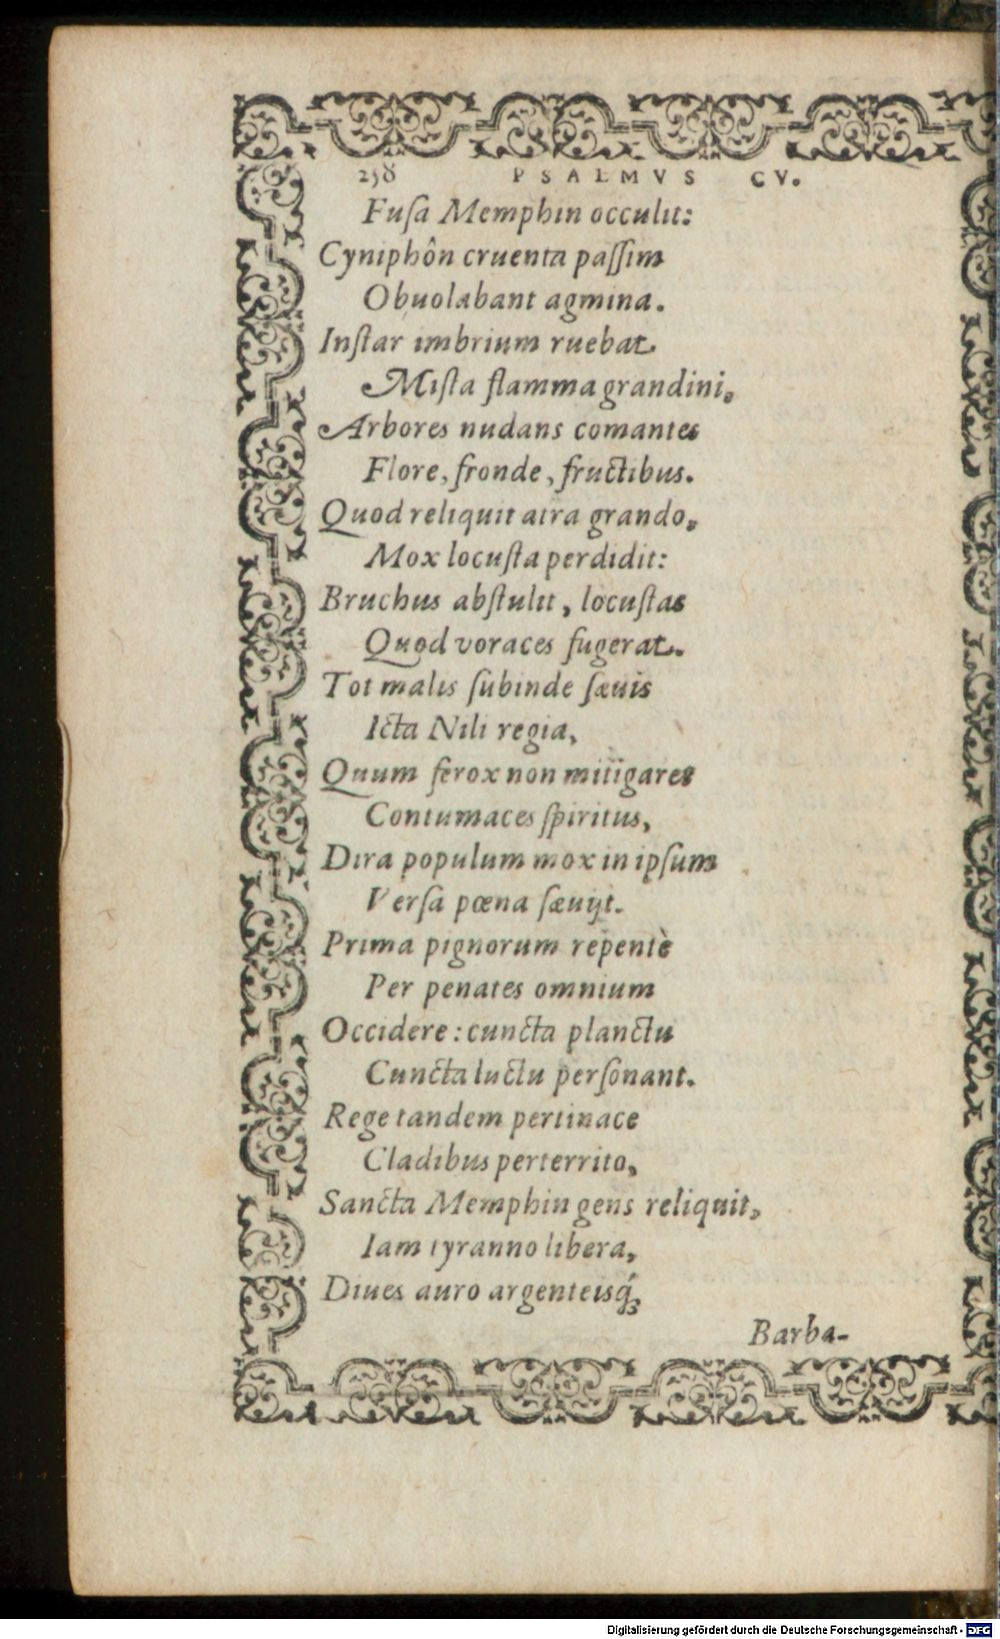 258 PSALMVS CV.
Fuſa Memphin occulit:
Cyniphôn cruenta paſſim
Obuolabant agmina.
Inſtar imbrium ruebat
Miſta flamma grandini,
Arbores nudans comantes
Flore, fronde, fructibus.
Quod reliquit atra grando,
Mox locuſta perdidit:
Bruchus abſtulit, locuſtas
Quod voraces fugerat.
Tot malis ſubinde ſæuis
Icta Nili regia,
Quum ferox non mitigaret
Contumaces ſpiritus,
Dira populum mox in ipſum
Verſa pœna ſæuijt.
Prima pignorum repentè
Per penates omnium
Occidere: cuncta planctu
Cuncta luctu perſonant.
Rege tandem pertinace
Cladibus perterrito,
Sancta Memphin gens reliquit,
Iam tyranno libera,
Diues auro argenteisq́;
Barba-
Digitalisierung gefördert durch die Deutsche Forschungsgemeinschaft - DFG